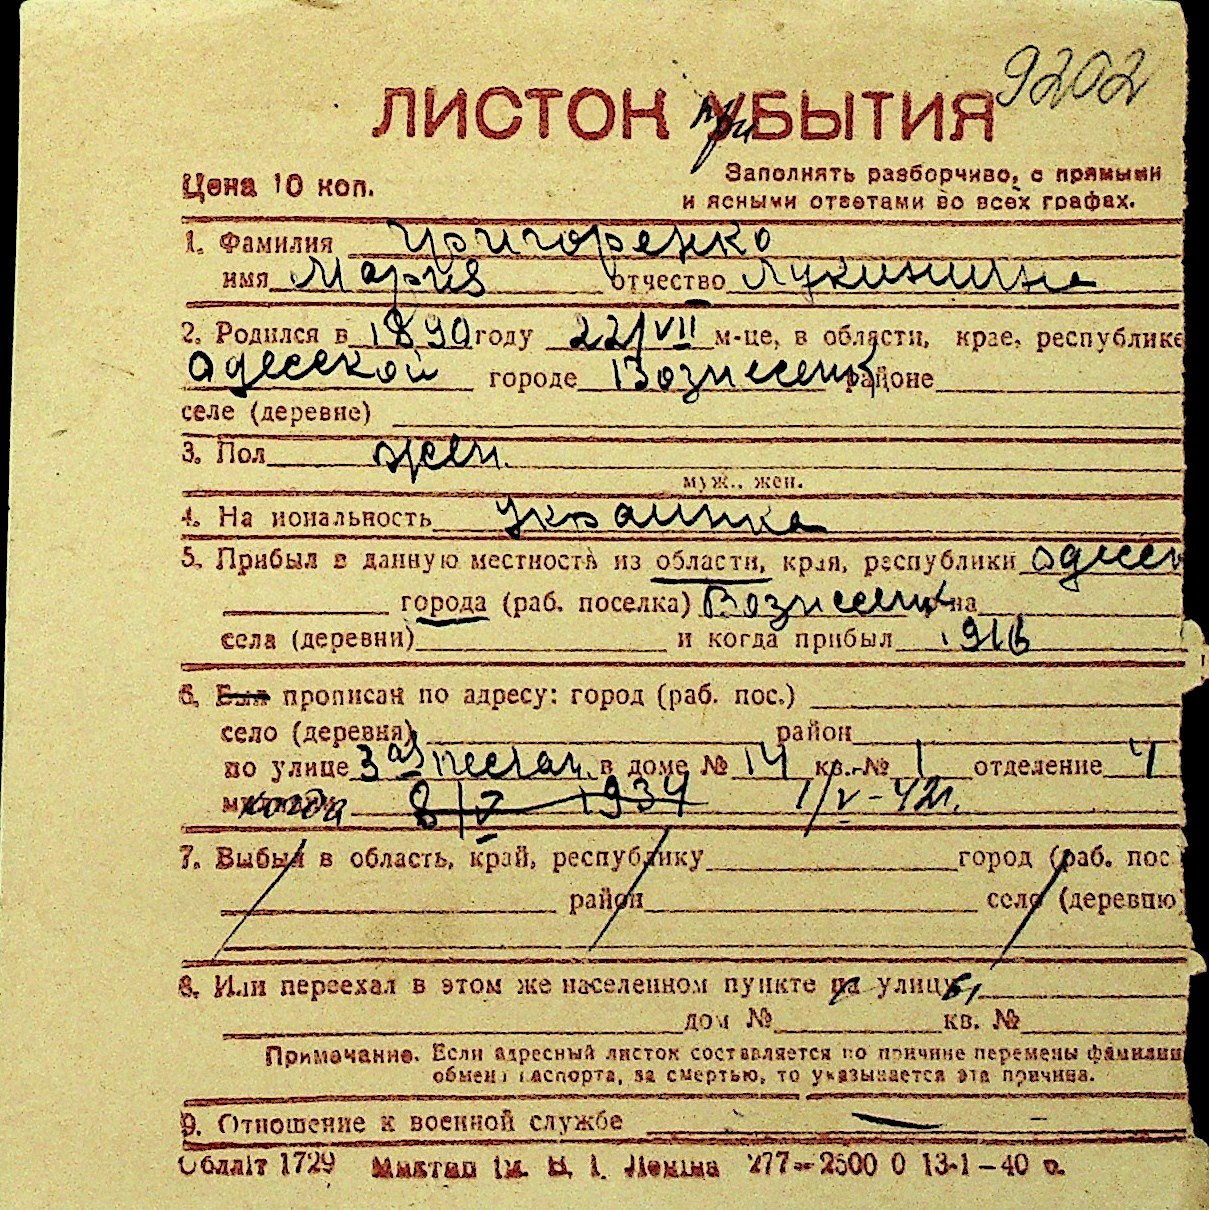 9202
ЛИСТОК УБЫТИЯ
при
Цена 10 коп.
Заполнять разборчиво, с прямыми
и ясными ответами во всех графах.
1. Фамилия Григоренко
имя Мария отчество Лукинична
2. Родился в 1890 году 22/VII м-це, в области, крае, республике
Одесской городе Вознесенск районе
селе (деревне)
3. Пол жен.
муж., жен.
4. На иональность украинка
5. Прибыл в данную местность из области, края, республики Одесск
города (раб. поселка) Вознесенск на
села (деревни) и когда прибыл 1916
6. Был прописан по адресу: город (раб. пос.)
село (деревня) район
по улице 3ая песчан. в доме № 14 кв. № 1 отделение 4
когда 8/V 1934 1/V-42г.
7. Выбыл в область, край, республику город (раб. пос
район село (деревню)
8. Или переехал в этом же населенном пункте на улицу
дом № кв. №
Примечание. Если адресный листок составляется по причине перемены фамилии
обмена паспорта, за смертью, то указывается эта причина.
9. Отношение к военной службе — –
Обллiт 1729 iм. В. I. Ленiна 277—2500 0 13-1-40 р.